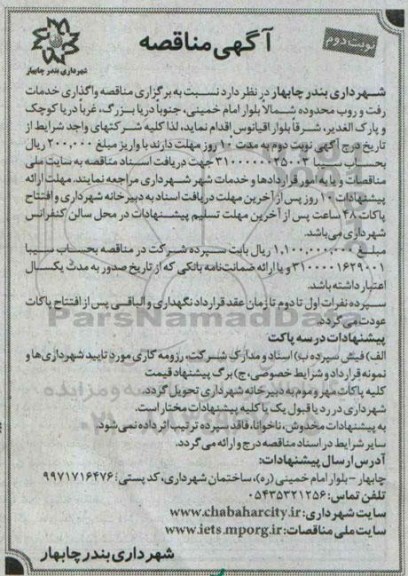 آگهی مناقصه
نوبت دوم
شهرداری بندر چابهار
شهرداری بندر چابهار در نظر دارد نسبت به برگزاری مناقصه واگذاری خدمات
رفت و روب محدوده شمالاً بلوار امام خمینی، جنوباً دریا بزرگ، غرباً دریا کوچک
و پارک الغدیر، شرقاً بلوار اقیانوس اقدام نماید، لذا کلیه شرکتهای واجد شرایط از
تاریخ درج آگهی نوبت دوم به مدت ۱۰ روز مهلت دارند با واریز مبلغ ۲۰۰,۰۰۰ ریال
بحساب سیبا ۳۱۰۰۰۰۰۲۵۰۰۳ جهت دریافت اسناد مناقصه به سایت ملی
مناقصات و یا به امور قراردادها و خدمات شهر شهرداری مراجعه نمایند. مهلت ارائه
پیشنهادات ۱۰ روز پس از آخرین مهلت دریافت اسناد به دبیرخانه شهرداری و افتتاح
پاکات ۴۸ ساعت پس از آخرین مهلت تسلیم پیشنهادات در محل سالن کنفرانس
شهرداری می‌باشد.
مبلغ ۱,۱۰۰,۰۰۰,۰۰۰ ریال بابت سپرده شرکت در مناقصه بحساب سیبا
۳۱۰۰۰۰۱۶۲۹۰۰۱ و یا ارائه ضمانت‌نامه بانکی که از تاریخ صدور به مدت یکسال
اعتبار داشته باشد.
سپرده نفرات اول تا دوم تا زمان عقد قرارداد نگهداری و الباقی پس از افتتاح پاکات
عودت می‌گردد.
پیشنهادات در سه پاکت
الف) فیش سپرده ب) اسناد و مدارک شرکت، رزومه کاری مورد تایید شهرداری‌ها و
نمونه قرارداد و شرایط خصوصی، ج) برگ پیشنهاد قیمت
کلیه پاکات مهر و موم به دبیرخانه شهرداری تحویل گردد.
شهرداری در رد یا قبول یک یا کلیه پیشنهادات مختار است.
به پیشنهادات مخدوش، ناخوانا، فاقد سپرده ترتیب اثر داده نمی‌شود
سایر شرایط در اسناد مناقصه درج و ارائه می‌گردد.
آدرس ارسال پیشنهادات:
چابهار - بلوار امام خمینی (ره)، ساختمان شهرداری، کد پستی: ۹۹۷۱۷۱۶۴۷۶
تلفن تماس: ۰۵۴۳۵۳۲۱۲۵۶
سایت شهرداری: www.chabaharcity.ir
سایت ملی مناقصات: www.iets.mporg.ir
شهرداری بندر چابهار
ParsNamadData